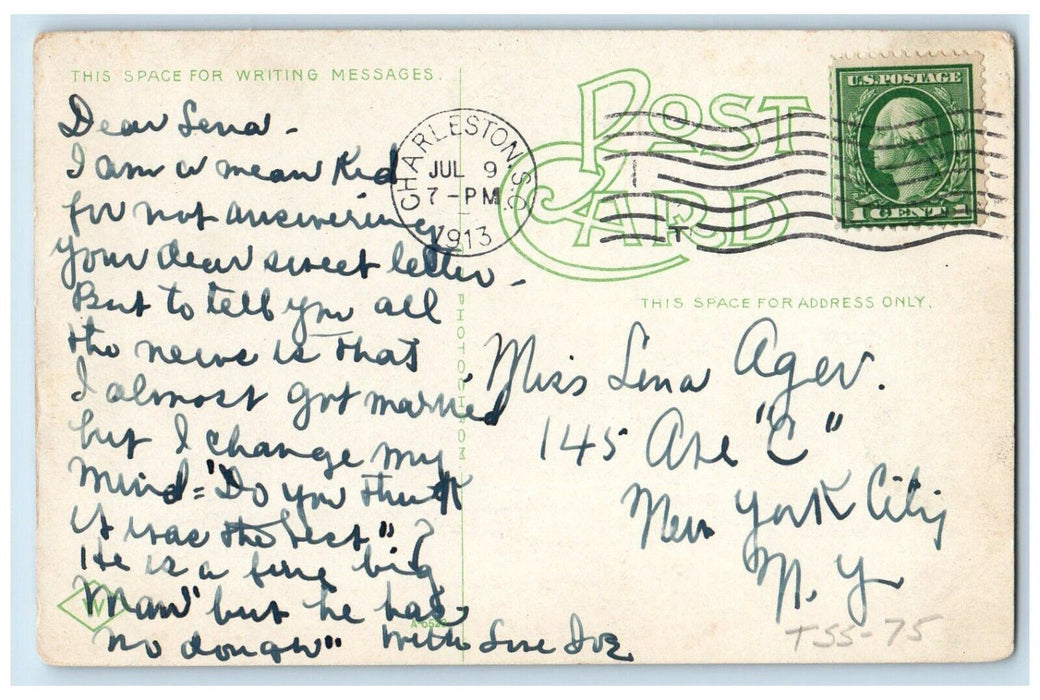 THIS SPACE FOR WRITING MESSAGES.
Dear Lena -
I am a mean Kid
for not answering
your dear sweet letter -
But to tell you all
the news is that
I almost got married
but I change my
mind = "Do you think
it was the best" ?
He is a fine big
man" but he has
no dough"
With Love
PHOTOCHROM
W
CHARLESTON, S.C.
JUL 9
7 - PM
1913
POST
CARD
U.S. POSTAGE
1 CENT 1
THIS SPACE FOR ADDRESS ONLY.
Miss Lena Ager.
145 Ave "C"
New York City
N. Y
TSS-75